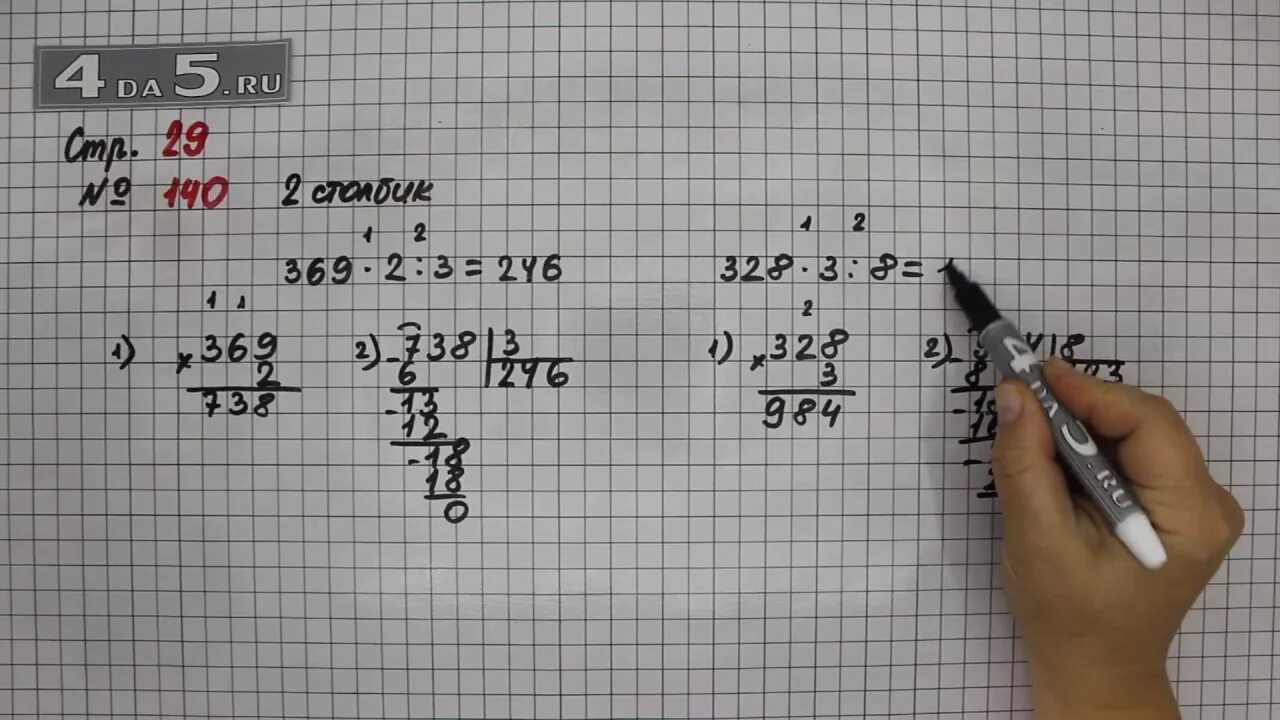 4 DA 5.RU
Стр. 29
№ 140 2 столбик
1 2
369 · 2 : 3 = 246
1 1
1) × 369
2
738
2) - 738 | 3
6 246
- 13
12
- 18
18
0
1 2
328 · 3 : 8 =
2
1) × 328
3
984
2) - 4 | 8
8 3
-
-
4 DA 5.RU